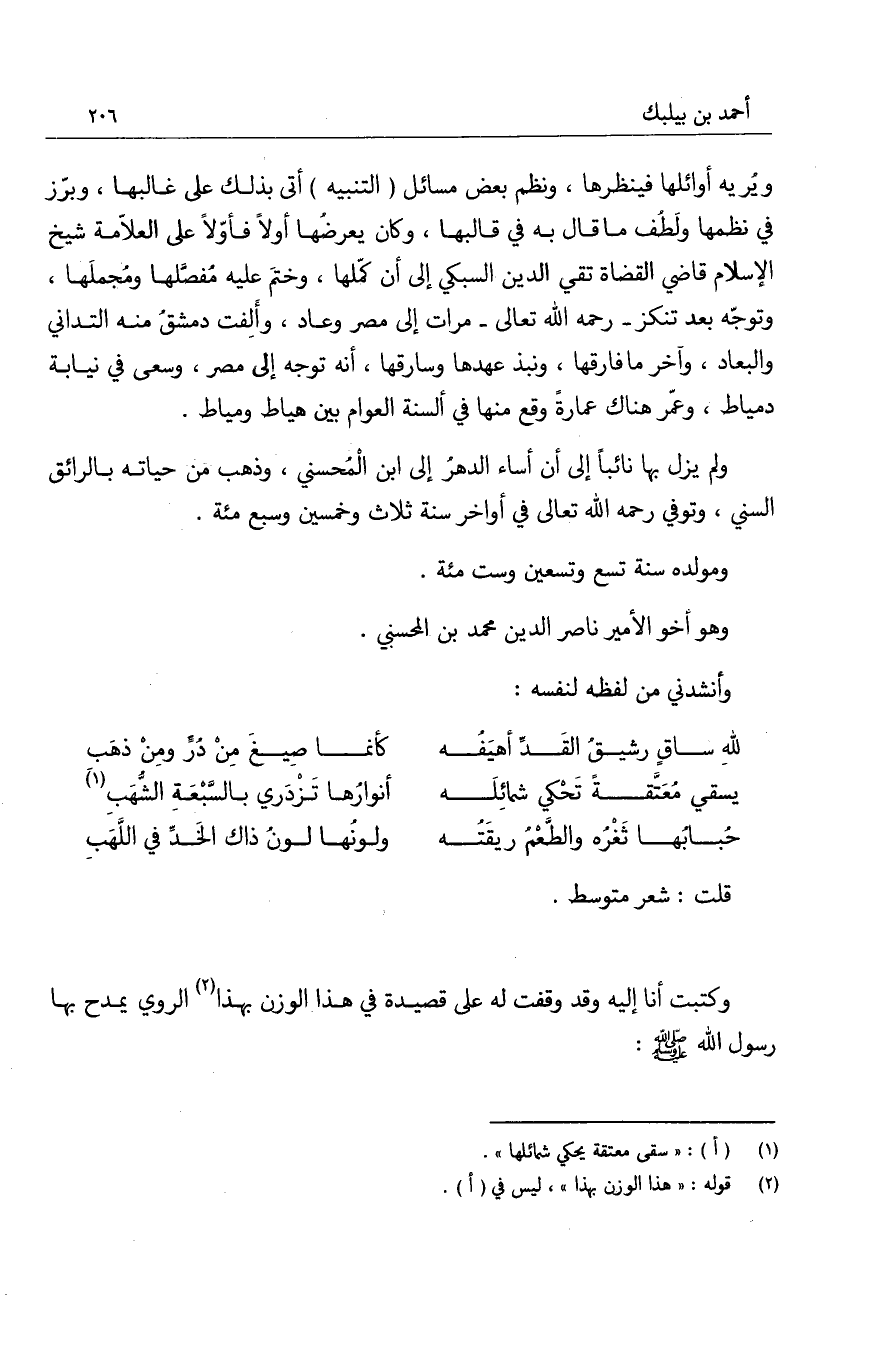 أحمد بن بيلبك ٢٠٦
ويُريه أوائلها فينظرها ، ونظم بعض مسائل ( التنبيه ) أتى بذلك على غالبها ، وبرّز
في نظمها ولَطُف ماقال به في قالبها ، وكان يعرضُها أولاً فأوّلاً على العلاّمة شيخ
الإسلام قاضي القضاة تقي الدين السبكي إلى أن كمّلها ، وختمَ عليه مُفصَّلها ومُجملَها ،
وتوجّه بعد تنكز ـ رحمه الله تعالى ـ مرات إلى مصر وعاد ، وأَلِفت دمشقُ منه التداني
والبعاد ، وآخر مافارقها ، ونبذ عهدها وسارقها ، أنه توجه إلى مصر ، وسعى في نيابة
دمياط ، وعمّر هناك عمارةً وقع منها في ألسنة العوام بين هياط ومياط .
ولم يزل بها نائباً إلى أن أساء الدهرُ إلى ابن الْمُحسني ، وذهب من حياته بالرائق
السني ، وتوفي رحمه الله تعالى في أواخر سنة ثلاث وخمسين وسبع مئة .
ومولده سنة تسع وتسعين وست مئة .
وهو أخو الأمير ناصر الدين محمد بن المحسني .
وأنشدني من لفظه لنفسه :
للهِ ساقٍ رشيقُ القدِّ أهيَفُه كأنما صِيغَ مِنْ دُرٍّ ومِنْ ذهَبِ
يسقي مُعَتَّقةً تَحْكي شمائلَه أنوارُها تَزْدَري بالسَّبْعَةِ الشُّهَبِ(١)
حُبابُها ثَغْرُه والطَّعْمُ ريقَتُه ولونُها لونُ ذاك الخَدِّ في اللَّهَبِ
قلت : شعر متوسط .
وكتبت أنا إليه وقد وقفت له على قصيدة في هذا الوزن بهذا(٢) الروي يمدح بها
رسول الله ﷺ :
(١) ( أ ) : « سقى معتقة يحكي شمائلها » .
(٢) قوله : « هذا الوزن بهذا » ، ليس في ( أ ) .